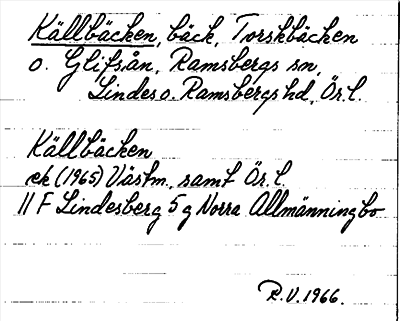 Källbäcken, bäck, Torskbäcken
o. Glifsån, Ramsbergs sn,
Lindes o. Ramsbergs hd, Ör.l.
Källbäcken
ek (1965) Västm. samt Ör.l.
11 F Lindesberg 5 g Norra Allmänningbo
R.V. 1966.